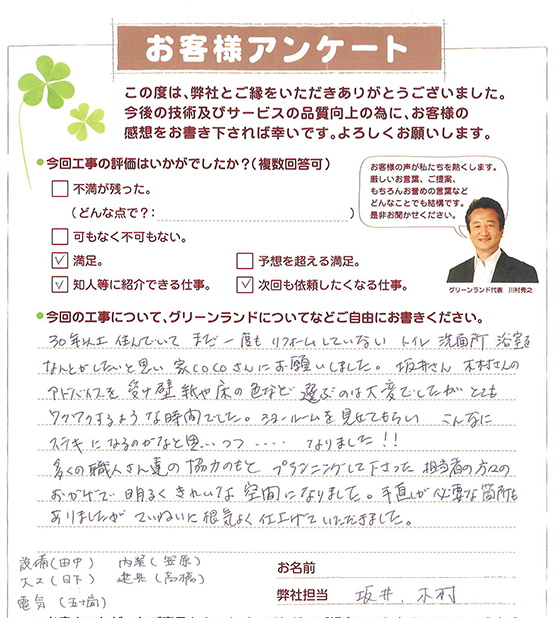 お客様アンケート
この度は、弊社とご縁をいただきありがとうございました。
今後の技術及びサービスの品質向上の為に、お客様の
感想をお書き下されば幸いです。よろしくお願いします。
●今回工事の評価はいかがでしたか?(複数回答可)
お客様の声が私たちを熱くします。
厳しいお言葉、ご提案、
もちろんお誉めの言葉など
どんなことでも結構です。
是非お聞かせください。
グリーンランド代表 川村秀之
□不満が残った。
(どんな点で?: )
□可もなく不可もない。
☑満足。 □予想を超える満足。
☑知人等に紹介できる仕事。 ☑次回も依頼したくなる仕事。
●今回の工事について、グリーンランドについてなどご自由にお書きください。
30年以上住んでいて まだ一度もリフォームしていない トイレ 洗面所 浴室を
なんとかしたいと思い 家cocoさんにお願いしました。坂井さん 木村さんの
アドバイスを受け壁紙や床の色など選ぶのは大変でしたがとても
ワクワクするような時間でした。ショールームを見せてもらい こんなに
ステキになるのかなと思いつつ ‥‥ なりました!!
多くの職人さん達の協力のもと プランニングして下さった担当者の方々の
おかげで 明るくきれいな空間になりました。手直しが必要な箇所も
ありましたが ていねいに根気よく仕上げていただきました。
設備(田中) 内装(笠原)
大工(日下) 建具(高橋)
電気(五十嵐)
お名前
弊社担当 坂井、木村